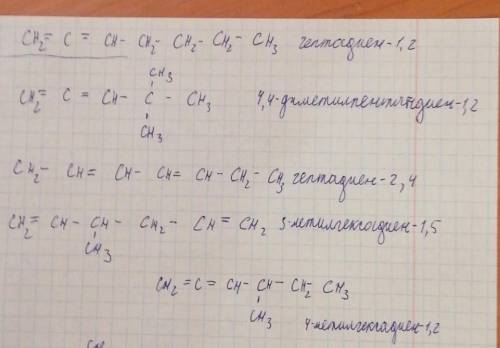 CH₂= C = CH- CH₂- CH₂- CH₂- CH₃ гептадиен-1,2
CH₃
CH₂= C = CH- C - CH₃ 4,4-диметилпентадиен-1,2
CH₃
CH₂- CH= CH- CH= CH- CH₂- CH₃ гептадиен-2,4
CH₂= CH- CH- CH₂- CH = CH₂ 3-метилгексадиен-1,5
CH₃
CH₂ =C= CH- CH- CH₂- CH₃
CH₃
4-метилгексадиен-1,2